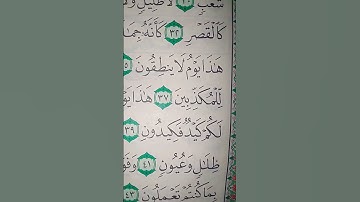 شُعَبٍ ٣٠ لَّا ظَلِيلٍ وَ
كَٱلْقَصْرِ ٣٢ كَأَنَّهُۥ جِمَٰ
هَٰذَا يَوْمُ لَا يَنطِقُونَ ٥
لِّلْمُكَذِّبِينَ ٣٧ هَٰذَا يَوْ
لَكُمْ كَيْدٌ فَكِيدُونِ ٣٩
ظِلَٰلٍ وَعُيُونٍ ٤١ وَفَوَ
بِمَا كُنتُمْ تَعْمَلُونَ ٤٣